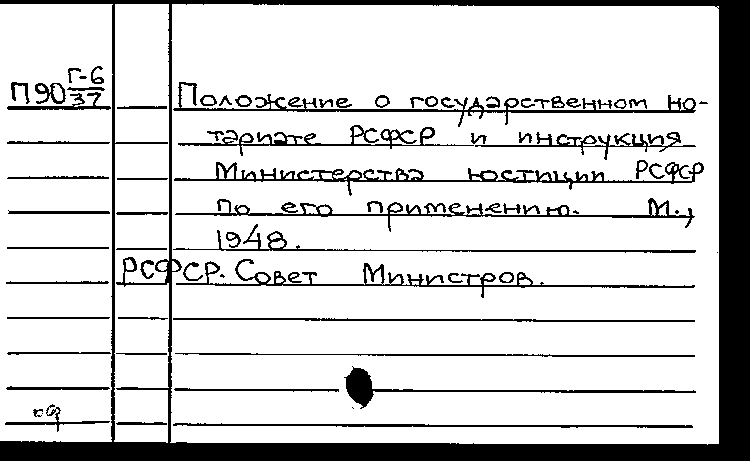 П90 Г-6/37 Положение о государственном но-
тариате РСФСР и инструкция
Министерства юстиции РСФСР
по его применению. М.,
1948.
РСФСР. Совет Министров.